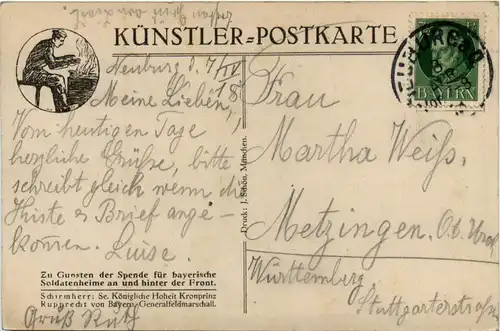 KÜNSTLER-POSTKARTE
Neuburg d. 7/IV 18.
Meine Lieben,
Vom heutigen Tage
herzliche Grüße, bitte
schreibt gleich wenn die
Kiste u. Brief ange-
kommen. Luise.
Zu Gunsten der Spende für bayerische
Soldatenheime an und hinter der Front.
Schirmherr: Se. Königliche Hoheit Kronprinz
Rupprecht von Bayern, Generalfeldmarschall.
Gruß Ruth
Druck: J. Schön, München.
BAYERN
Frau
Martha Weiß,
Metzingen. O.A. Urach
Württemberg
Stuttgarterstraße